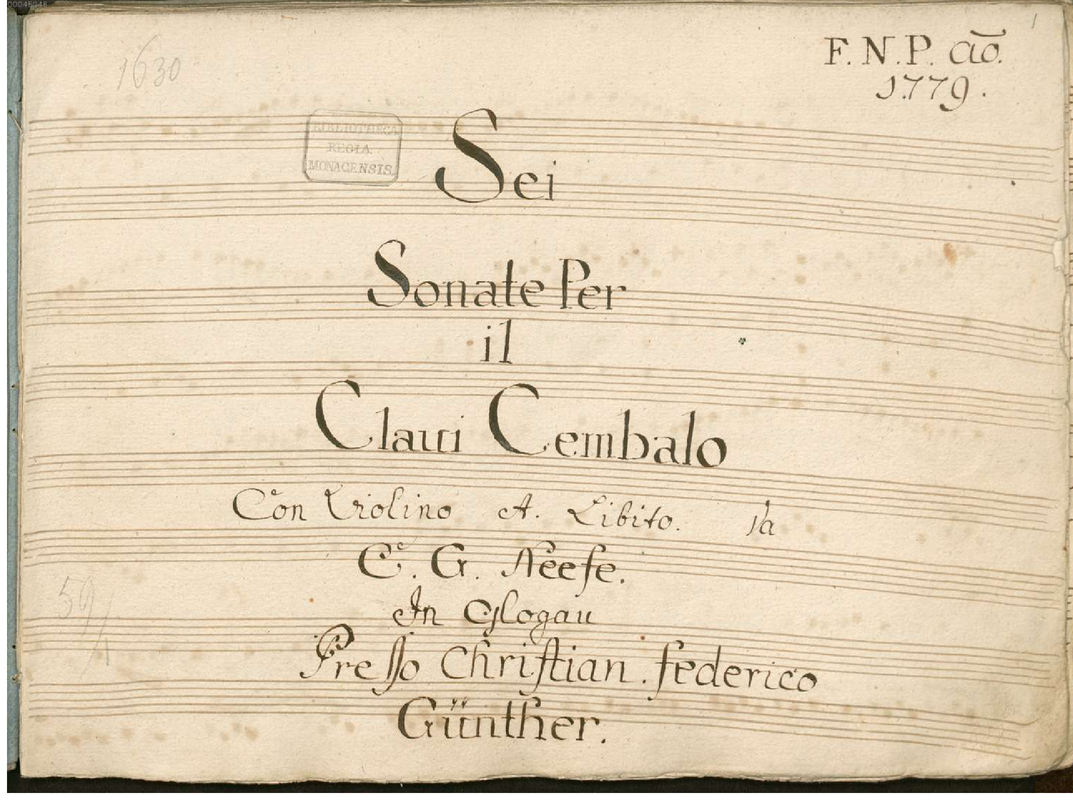 00046946
1
1630
F. N. P. aō.
1779.
BIBLIOTHECA
REGIA
MONACENSIS.
Sei
Sonate Per
il
Claui Cembalo
Con Violino A. Libito.
C. G. Neefe.
59/
In Glogau
Presso Christian. federico
Günther.